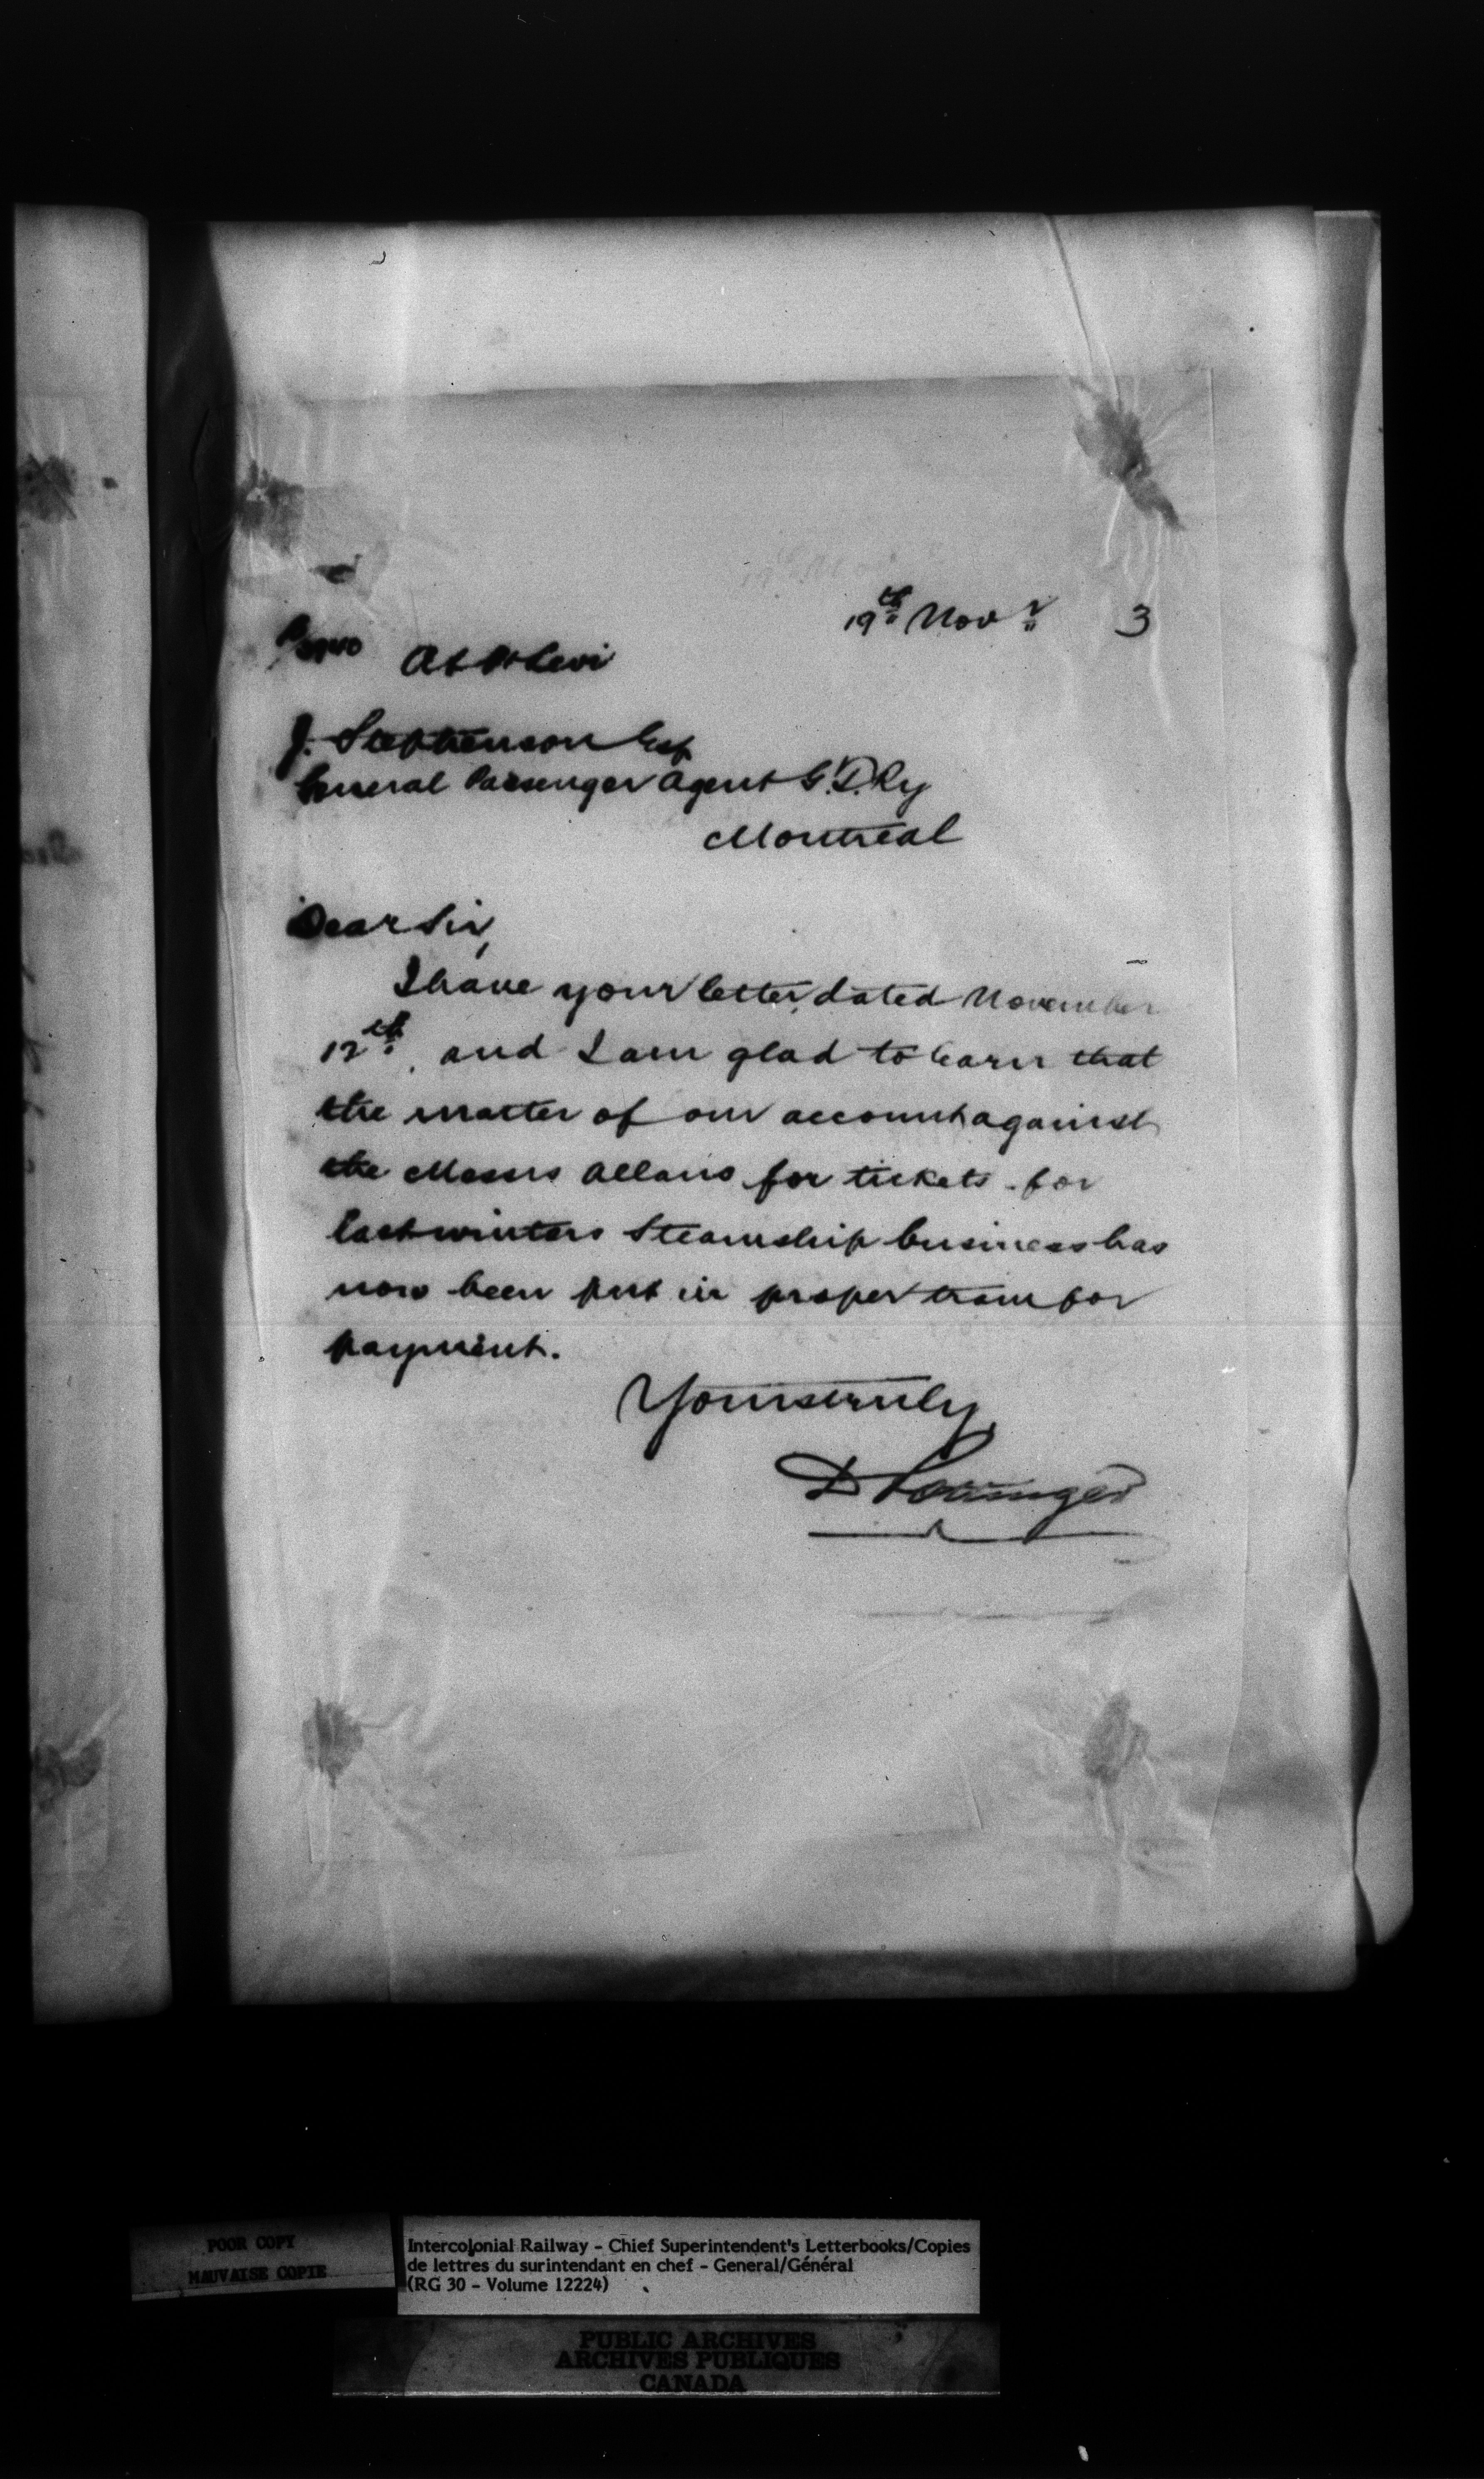 19th Novr 3
At Pt Levi
J. Stephenson Esq
General Passenger Agent G.T. Ry
Montreal
Dear Sir,
I have your letter, dated November
12th, and I am glad to learn that
the matter of our account against
the Messrs Allans for tickets for
last winters Steamship business has
now been put in proper train for
payment.
Yours truly
D Pottinger
POOR COPY
MAUVAISE COPIE
Intercolonial Railway - Chief Superintendent's Letterbooks/Copies
de lettres du surintendant en chef - General/Général
(RG 30 - Volume 12224)
PUBLIC ARCHIVES
ARCHIVES PUBLIQUES
CANADA